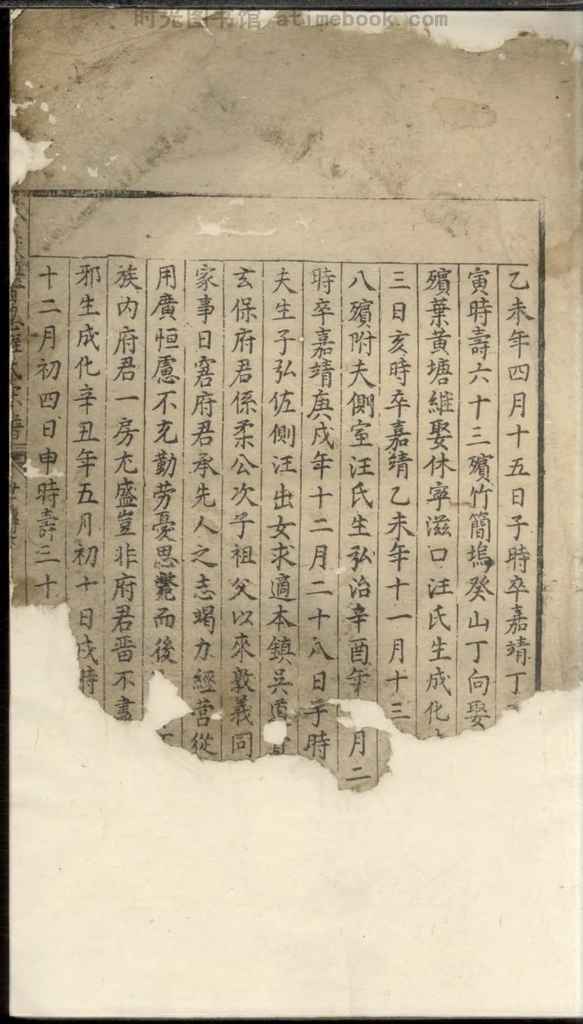 时光图书馆 atimebook.com
乙未年四月十五日子時卒嘉靖丁
寅時壽六十三殯竹簡塢癸山丁向娶
殯葉黃塘繼娶休寧滋口汪氏生成化
三日亥時卒嘉靖乙未年十一月十三
八殯附夫側室汪氏生弘治辛酉年 月二
時卒嘉靖庚戌年十二月二十八日子時
夫生子弘佐側汪出女求適本鎮吳
玄保府君係柔公次子祖父以來敦義同
家事日窘府君承先人之志竭力經營從
用廣恒慮不充勤劳憂思斃而後
族內府君一房尤盛豈非府君晋不書
邪生成化辛丑年五月初十日戌時
十二月初四日申時壽三十